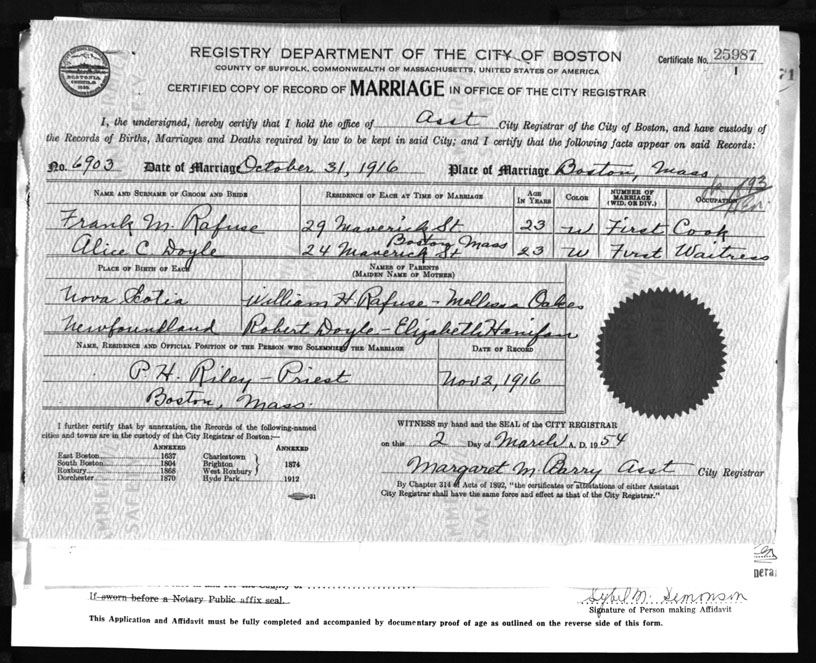 REGISTRY DEPARTMENT OF THE CITY OF BOSTON
Certificate No. 25987
COUNTY OF SUFFOLK, COMMONWEALTH OF MASSACHUSETTS, UNITED STATES OF AMERICA
1
71
CERTIFIED COPY OF RECORD OF MARRIAGE IN OFFICE OF THE CITY REGISTRAR
BOSTONIA
I, the undersigned, hereby certify that I hold the office of Asst City Registrar of the City of Boston, and have custody of
the Records of Births, Marriages and Deaths required by law to be kept in said City; and I certify that the following facts appear on said Records:
No. 6903 Date of Marriage October 31, 1916 Place of Marriage Boston, Mass
NAME AND SURNAME OF GROOM AND BRIDE RESIDENCE OF EACH AT TIME OF MARRIAGE AGE IN YEARS COLOR NUMBER OF MARRIAGE (WID. OR DIV.) OCCUPATION
Frank M. Rafuse 29 Maverick St 23 W First Cook
Boston Mass
Alice C. Doyle 24 Maverick St 23 W First Waitress
PLACE OF BIRTH OF EACH NAMES OF PARENTS (MAIDEN NAME OF MOTHER)
Nova Scotia William H. Rafuse - Mellissa Oakes
Newfoundland Robert Doyle - Elizabeth Hanifan
NAME, RESIDENCE AND OFFICIAL POSITION OF THE PERSON WHO SOLEMNIZED THE MARRIAGE DATE OF RECORD
P. H. Riley - Priest Nov 2, 1916
Boston, Mass.
I further certify that by annexation, the Records of the following-named
cities and towns are in the custody of the City Registrar of Boston:—
ANNEXED ANNEXED
East Boston 1637 Charlestown
South Boston 1804 Brighton 1874
Roxbury 1868 West Roxbury
Dorchester 1870 Hyde Park 1912
WITNESS my hand and the SEAL of the CITY REGISTRAR
on this 2 Day of March A. D. 1954
Margaret M. Barry Asst City Registrar
By Chapter 314 of Acts of 1892, "the certificates or attestations of either Assistant
City Registrar shall have the same force and effect as that of the City Registrar."
If sworn before a Notary Public affix seal.
Sybil M. Simonson
Signature of Person making Affidavit
This Application and Affidavit must be fully completed and accompanied by documentary proof of age as outlined on the reverse side of this form.